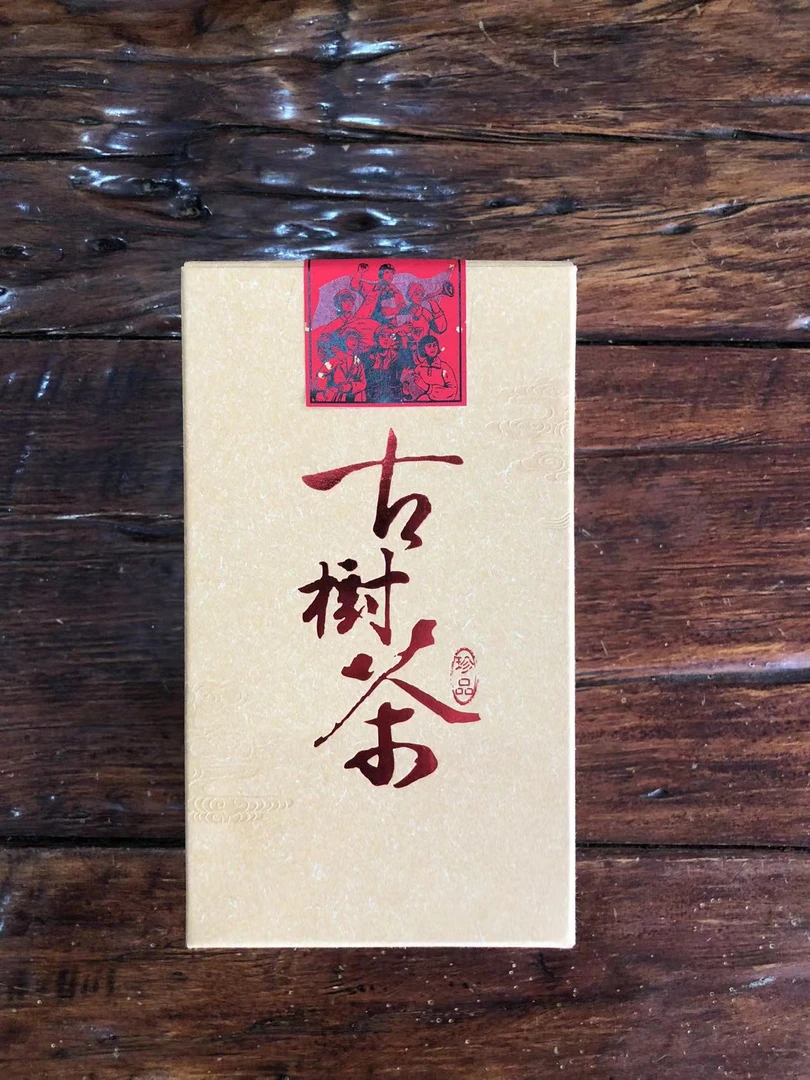 古樹茶
珍品